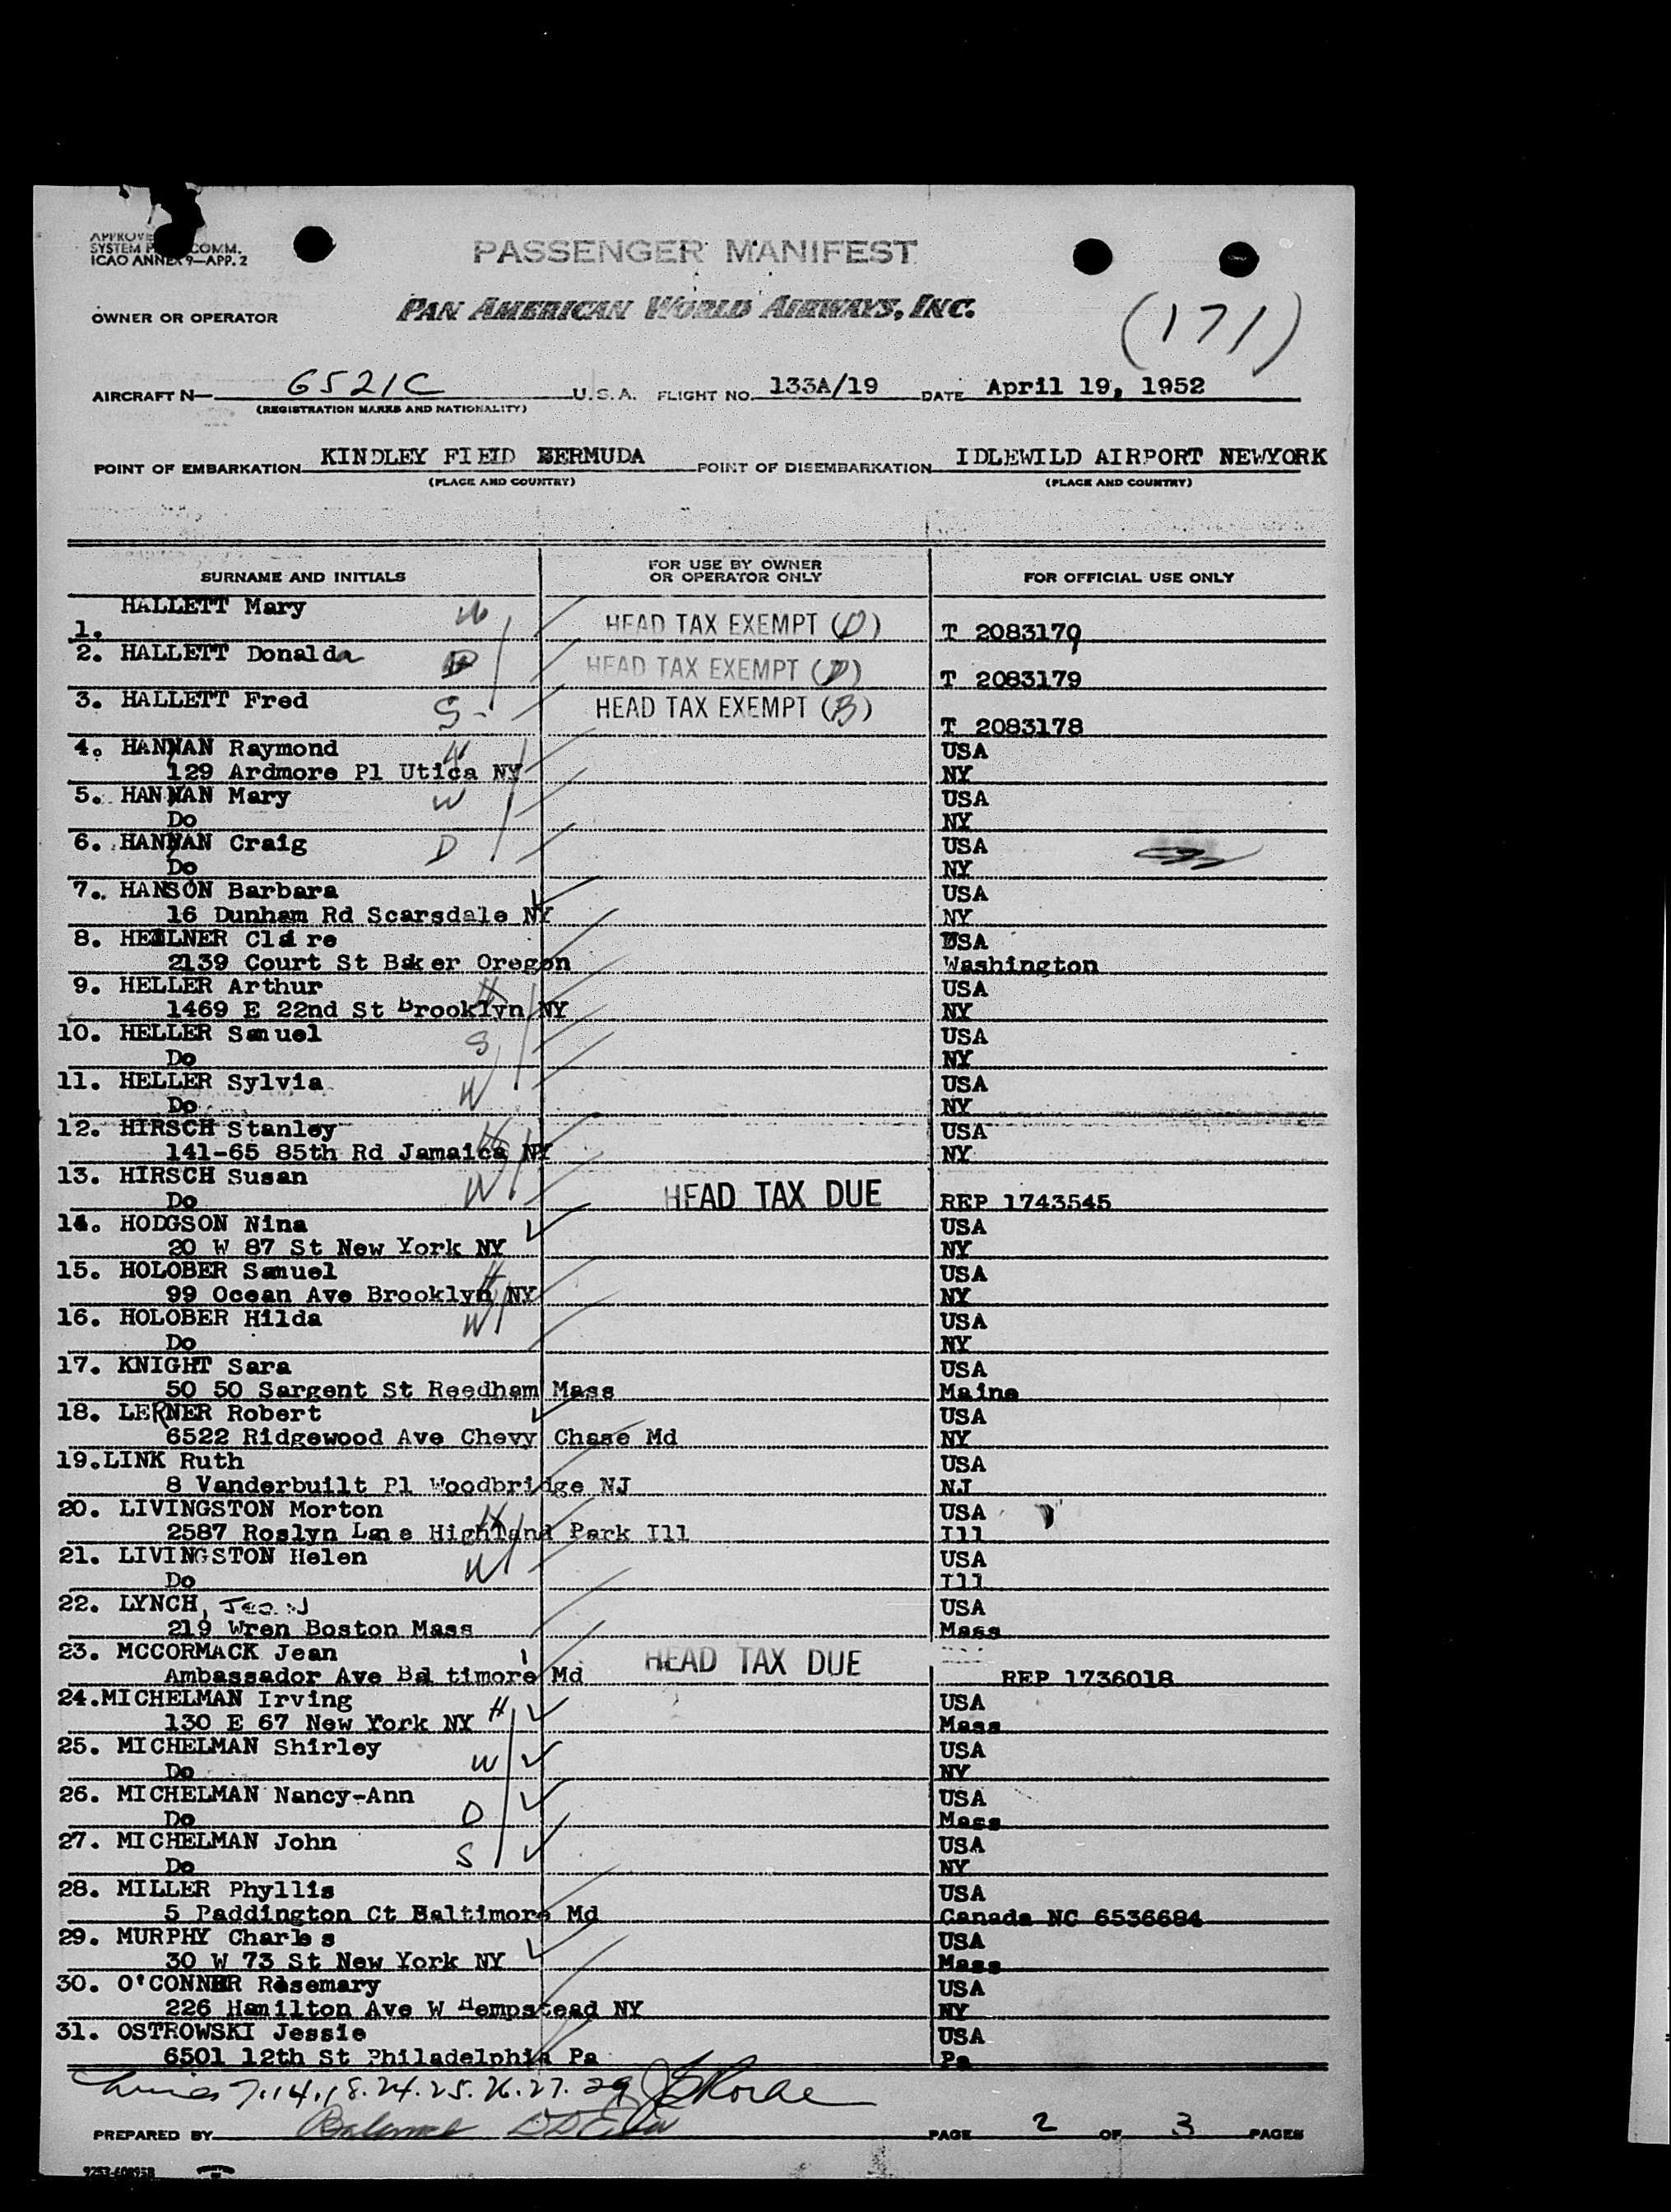 SYSTEM COMM.
ICAO ANNEX 9—APP. 2
PASSENGER MANIFEST
OWNER OR OPERATOR PAN AMERICAN WORLD AIRWAYS, INC.
(171)
AIRCRAFT N— 6521C U.S.A. FLIGHT NO. 133A/19 DATE April 19, 1952
(REGISTRATION MARKS AND NATIONALITY)
POINT OF EMBARKATION KINDLEY FIELD BERMUDA POINT OF DISEMBARKATION IDLEWILD AIRPORT NEWYORK
(PLACE AND COUNTRY) (PLACE AND COUNTRY)
SURNAME AND INITIALS FOR USE BY OWNER OR OPERATOR ONLY FOR OFFICIAL USE ONLY
HALLETT Mary W
1. HEAD TAX EXEMPT (D) T 2083179
2. HALLETT Donalda D HEAD TAX EXEMPT (D) T 2083179
3. HALLETT Fred S HEAD TAX EXEMPT (B) T 2083178
4. HANNAN Raymond H USA
129 Ardmore Pl Utica NY NY
5. HANNAN Mary W USA
Do NY
6. HANNAN Craig D USA
Do NY
7. HANSON Barbara USA
16 Dunham Rd Scarsdale NY NY
8. HELLNER Claire USA
2139 Court St Baker Oregon Washington
9. HELLER Arthur H USA
1469 E 22nd St Brooklyn NY NY
10. HELLER Samuel S USA
Do NY
11. HELLER Sylvia W USA
Do NY
12. HIRSCH Stanley H USA
141-65 85th Rd Jamaica NY NY
13. HIRSCH Susan W
Do HEAD TAX DUE REP 1743545
14. HODGSON Nina USA
20 W 87 St New York NY NY
15. HOLOBER Samuel H USA
99 Ocean Ave Brooklyn NY NY
16. HOLOBER Hilda W USA
Do NY
17. KNIGHT Sara USA
50 50 Sargent St Reedham Mass Maine
18. LERNER Robert USA
6522 Ridgewood Ave Chevy Chase Md NY
19. LINK Ruth USA
8 Vanderbuilt Pl Woodbridge NJ NJ
20. LIVINGSTON Morton H USA
2587 Roslyn Lane Highland Park Ill Ill
21. LIVINGSTON Helen W USA
Do Ill
22. LYNCH, Jean USA
219 Wren Boston Mass Mass
23. MCCORMACK Jean HEAD TAX DUE
Ambassador Ave Baltimore Md REP 1736018
24. MICHELMAN Irving H USA
130 E 67 New York NY Mass
25. MICHELMAN Shirley W USA
Do NY
26. MICHELMAN Nancy-Ann D USA
Do Mass
27. MICHELMAN John S USA
Do NY
28. MILLER Phyllis USA
5 Paddington Ct Baltimore Md Canada NC 6536684
29. MURPHY Charles USA
30 W 73 St New York NY Mass
30. O'CONNER Rosemary USA
226 Hamilton Ave W Hempstead NY NY
31. OSTROWSKI Jessie USA
6501 12th St Philadelphia Pa Pa
7.14.18.24.25.26.27.29
Balance
PREPARED BY PAGE 2 OF 3 PAGES